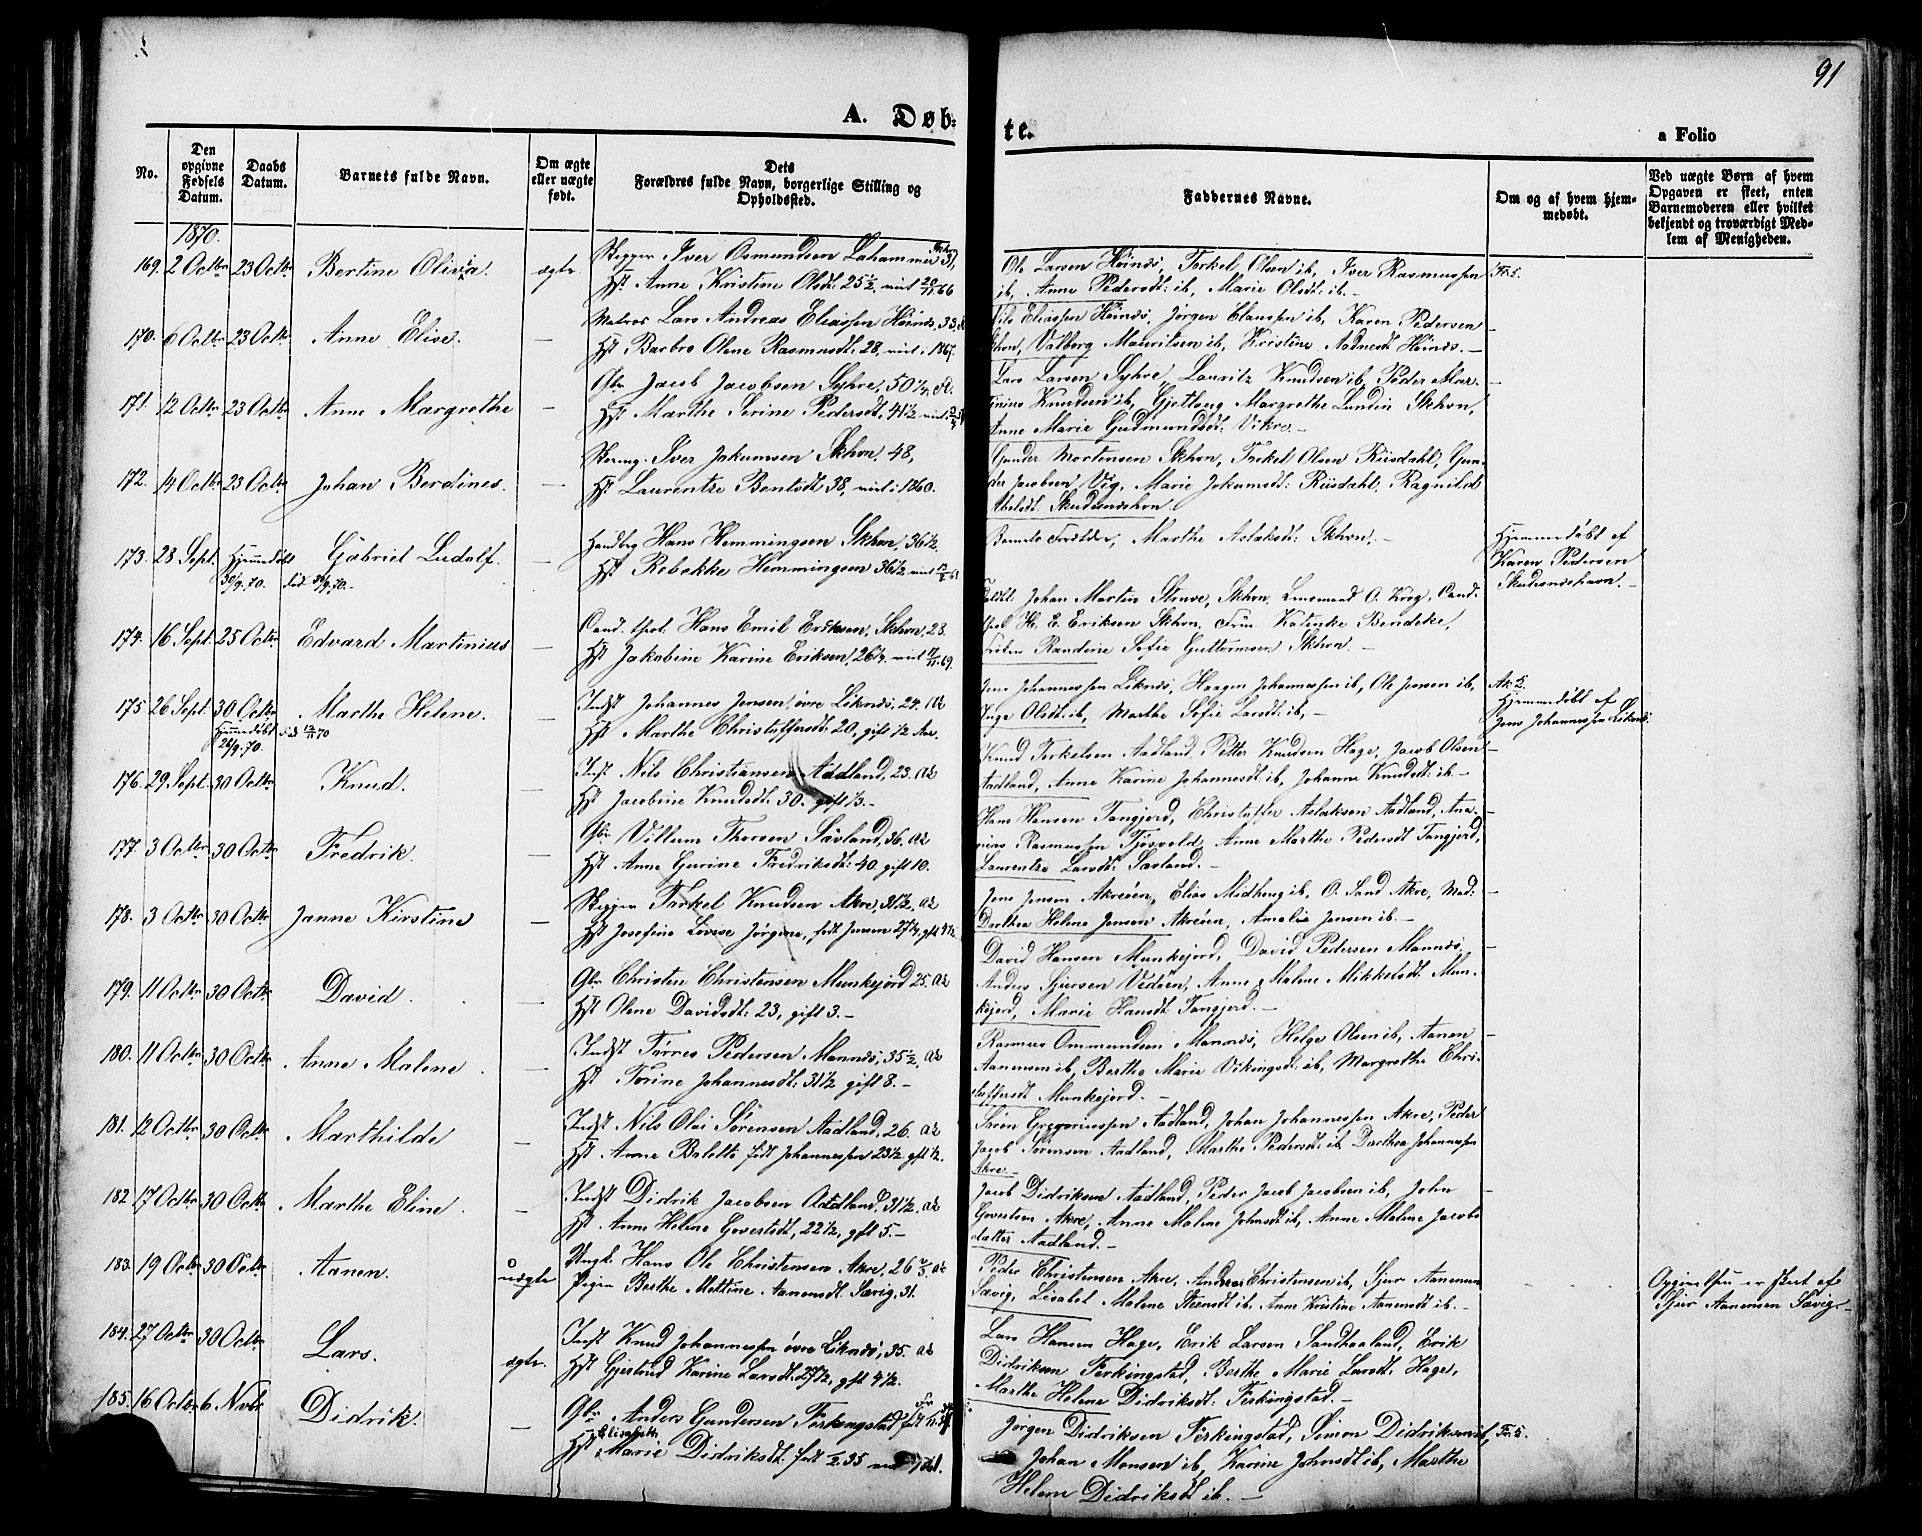 91
A. Døb- te.
a Folio
No.
Den opgivne Fødsels Datum.
Daabs Datum.
Barnets fulde Navn.
Om ægte eller uægte født.
Dets Forældres fulde Navn, borgerlige Stilling og Opholdssted.
Faddernes Navne.
Om og af hvem hjemmedøbt.
Ved uægte Børn af hvem Opgaven er skeet, enten Barnemoderen eller hvilket bekjendt og troværdigt Medlem af Menigheden.
1870.
169. 2 Octbr 23 Octbr Bertine Olivia. ægte
Skipper Iver Osmundsen Lahammer 37,
Hst. Anne Kristine Olsdt: 25½, viet 20/11 66
Ole Larsen Høinæs, Torkel Olsen ib, Iver Rasmussen
ib, Anne Pedersdt: ib, Marie Olsdt: ib.
170. 6 Octbr 23 Octbr Anne Elise. —
Matros Lars Andreas Eliassen Høinæs, 33,
Hst Barbro Olene Rasmusdt: 28, viet i 1867.
Nils Eliassen Høinæs, Jørgen Claussen ib, Karen Pedersen
Skhvn, Valborg Mauritsen ib, Kristine Aadnesdt Høinæs. —
171. 12 Octbr 23 Octbr Anne Margrethe —
Gbr. Jacob Jacobsen Syhre, 50¼,
Hst Marthe Serine Pedersdt. 41½
Lars Larsen Syhre, Lauritz Knudsen ib, Peder Mar-
tinius Knudsen ib, Gjetborg Margrethe Lundin Skhvn,
Anne Marie Gudmundsdt: Vikre. —
172. 14 Octbr 23 Octbr Johan Berdines. —
Iver Jokumsen Skhvn, 48,
Hst Laurentze Bentsdt 38, viet i 1860.
Gunder Mortensen Skhvn, Torkel Olsen Riisdahl, Gun-
der Jacobsen Vig, Marie Jokumsdt: Riisdahl, Ragnild
Abelsdt. Skudesneshvn.
173. 28 Sept. Hjemmedøbt 30/9. 70. Gabriel Ludolf. —
Handlbg Hans Hemmingsen Skhvn, 36½.
Hst Rebekke Hemmingsen 36½
Barnets Forældre, Marthe Aslaksdt: Skhvn. —
Hjemmedøbt af
Karen Pedersen
Skudesneshavn. —
174. 16 Sept. 25 Octbr Edvard Martinius —
Cand. theol. Hans Emil Eriksen, Skhvn, 28.
Hst Jakobine Karine Eriksen, 26¼, viet 17/11. 69.
Johan Martin Stenve, Skhvn. Lensmand O. Krog, Cand.
theol H. E. Eriksen Skhvn, Fru Katinke Bendeke,
Frøken Randine Sofie Guttormsen Skhvn. —
175 26 Sept. 30 Octbr Marthe Helene. —
Hjemmedøbt 26/9. 70.
Indst Johannes Jensen, øvre Liknæs, 24. Ak
Hst Marthe Christoffersdt: 20, gift ½ Aar.
Jens Johannessen Liknæs, Haagen Johannessen ib, Ole Jensen ib,
Inge Olsdt: ib, Marthe Sofie Larsdt: ib, —
Ak
Hjemmedøbt af
Jens Johannessen Liknæs.
176. 29 Sept. 30 Octbr Knud. —
Indst Nils Christiansen Aadland, 23. Ak
Hst Jacobine Knudsdt: 30. gift ⅓. —
Knud Torkelsen Aadland, Petter Knudsen Hage, Jacob Olsen
Aadland, Anne Karine Johannesdt ib, Johanne Knudsdt: ib. —
177. 3 Octbr 30 Octbr Fredrik. —
Gbr. Villum Thorsen Søvland, 36. Ak
Hst Anne Gurine Fredriksdt: 40. gift 10.
Hans Hansen Tangjerd, Christoffer Aslaksen Aadland, Ana-
nias Rasmussen Tjøsvold, Anne Marthe Pedersdt Tangjerd,
Laurentze Larsdt: Søvland. —
178. 3 Octbr 30 Octbr Janne Kirstine —
Skipper Torkel Knudsen Akre, 31½. Ak
Hst Josefine Lovise Jørgine, født Jensen 27¼, gft 4½.
Jens Jensen Akreøen, Elias Midhaug ib, O. Sand Akre, Mad:
Dorthea Helene Jensen Akreøen, Amalie Jensen ib. —
179. 11 Octbr 30 Octbr David. —
Gbr Christen Christensen Munkejord 25. Ak
Hst Olene Davidsdt: 23, gift 3. —
David Hansen Munkejord, David Pedersen Mannæs,
Anders Sjursen Vedøen, Anne Malene Mikkelsdt: Mun-
kejord, Marie Hansdt Tangjerd. —
180. 11 Octbr 30 Octbr Anne Malene. —
Indst Tørres Pedersen Mannæs, 35½. Ak
Hst Torine Johannesdt: 31½ gift 8. —
Rasmus Ommundsen Mannæs, Helge Olsen ib, Aanen
Aanensen ib, Berthe Marie Vikingsdt: ib, Margrethe Chri-
stoffersdt Munkejord. —
181. 12 Octbr 30 Octbr Marthilde —
Indst Nils Olai Sørensen Aadland, 26. Ak
Hst Anne Bolette født Johannessen 23½ gft ½.
Søren Gregoriussen Aadland, Johan Johannessen Akre, Peder
Jacob Sørensen Aadland, Marthe Pedersdt: ib, Dorthea Johannessen
Akre. —
182 17 Octbr 30 Octbr Marthe Eline. —
Indst Didrik Jacobsen Aadland, 31½. Ak
Hst. Anne Helene Govertsdt, 22½, gft 5. —
Jacob Didriksen Aadland, Peder Jacob Jacobsen ib, John
Govertsen Akre, Anne Malene Johnsdt ib, Anne Malene Jacobs
datter Aadland. —
183. 19 Octbr 30 Octbr Aanen. uægte
Ungk. Hans Ole Christensen Akre, 26⅔. Ak
Pigen Berthe Mattine Aanensdt. Sævig, 31.
Peder Christensen Akre, Andreas Christensen ib, Sjur Aanensen
Sævig, Lisabet Malene Steensdt ib, Anne Kristine Aanensdt ib. —
Opgivelsen er skeet af
Sjur Aanensen Sævig. —
184. 27 Octbr 30 Octbr Lars. ægte
Indst Knud Johannessen øvre Liknæs, 35. Ak
Hst Gjertrud Karine Larsdt: 27½, gft 4½.
Lars Hansen Hage, Erik Larsen Sandhaaland, Erik
Didriksen Ferkingstad, Berthe Marie Larsdt: Hage,
Marthe Helene Didriksdt: Ferkingstad. —
185. 16 Octbr 6 Novbr Didrik. —
Gbr Anders Gundersen Ferkingstad
Hst Elisabeth Marie Didriksdt: født 35
Jørgen Didriksen Ferkingstad, Simon Didriksen ib,
Johan Monsen ib, Karine Johnsdt ib, Marthe
Helene Didriksdt ib. —